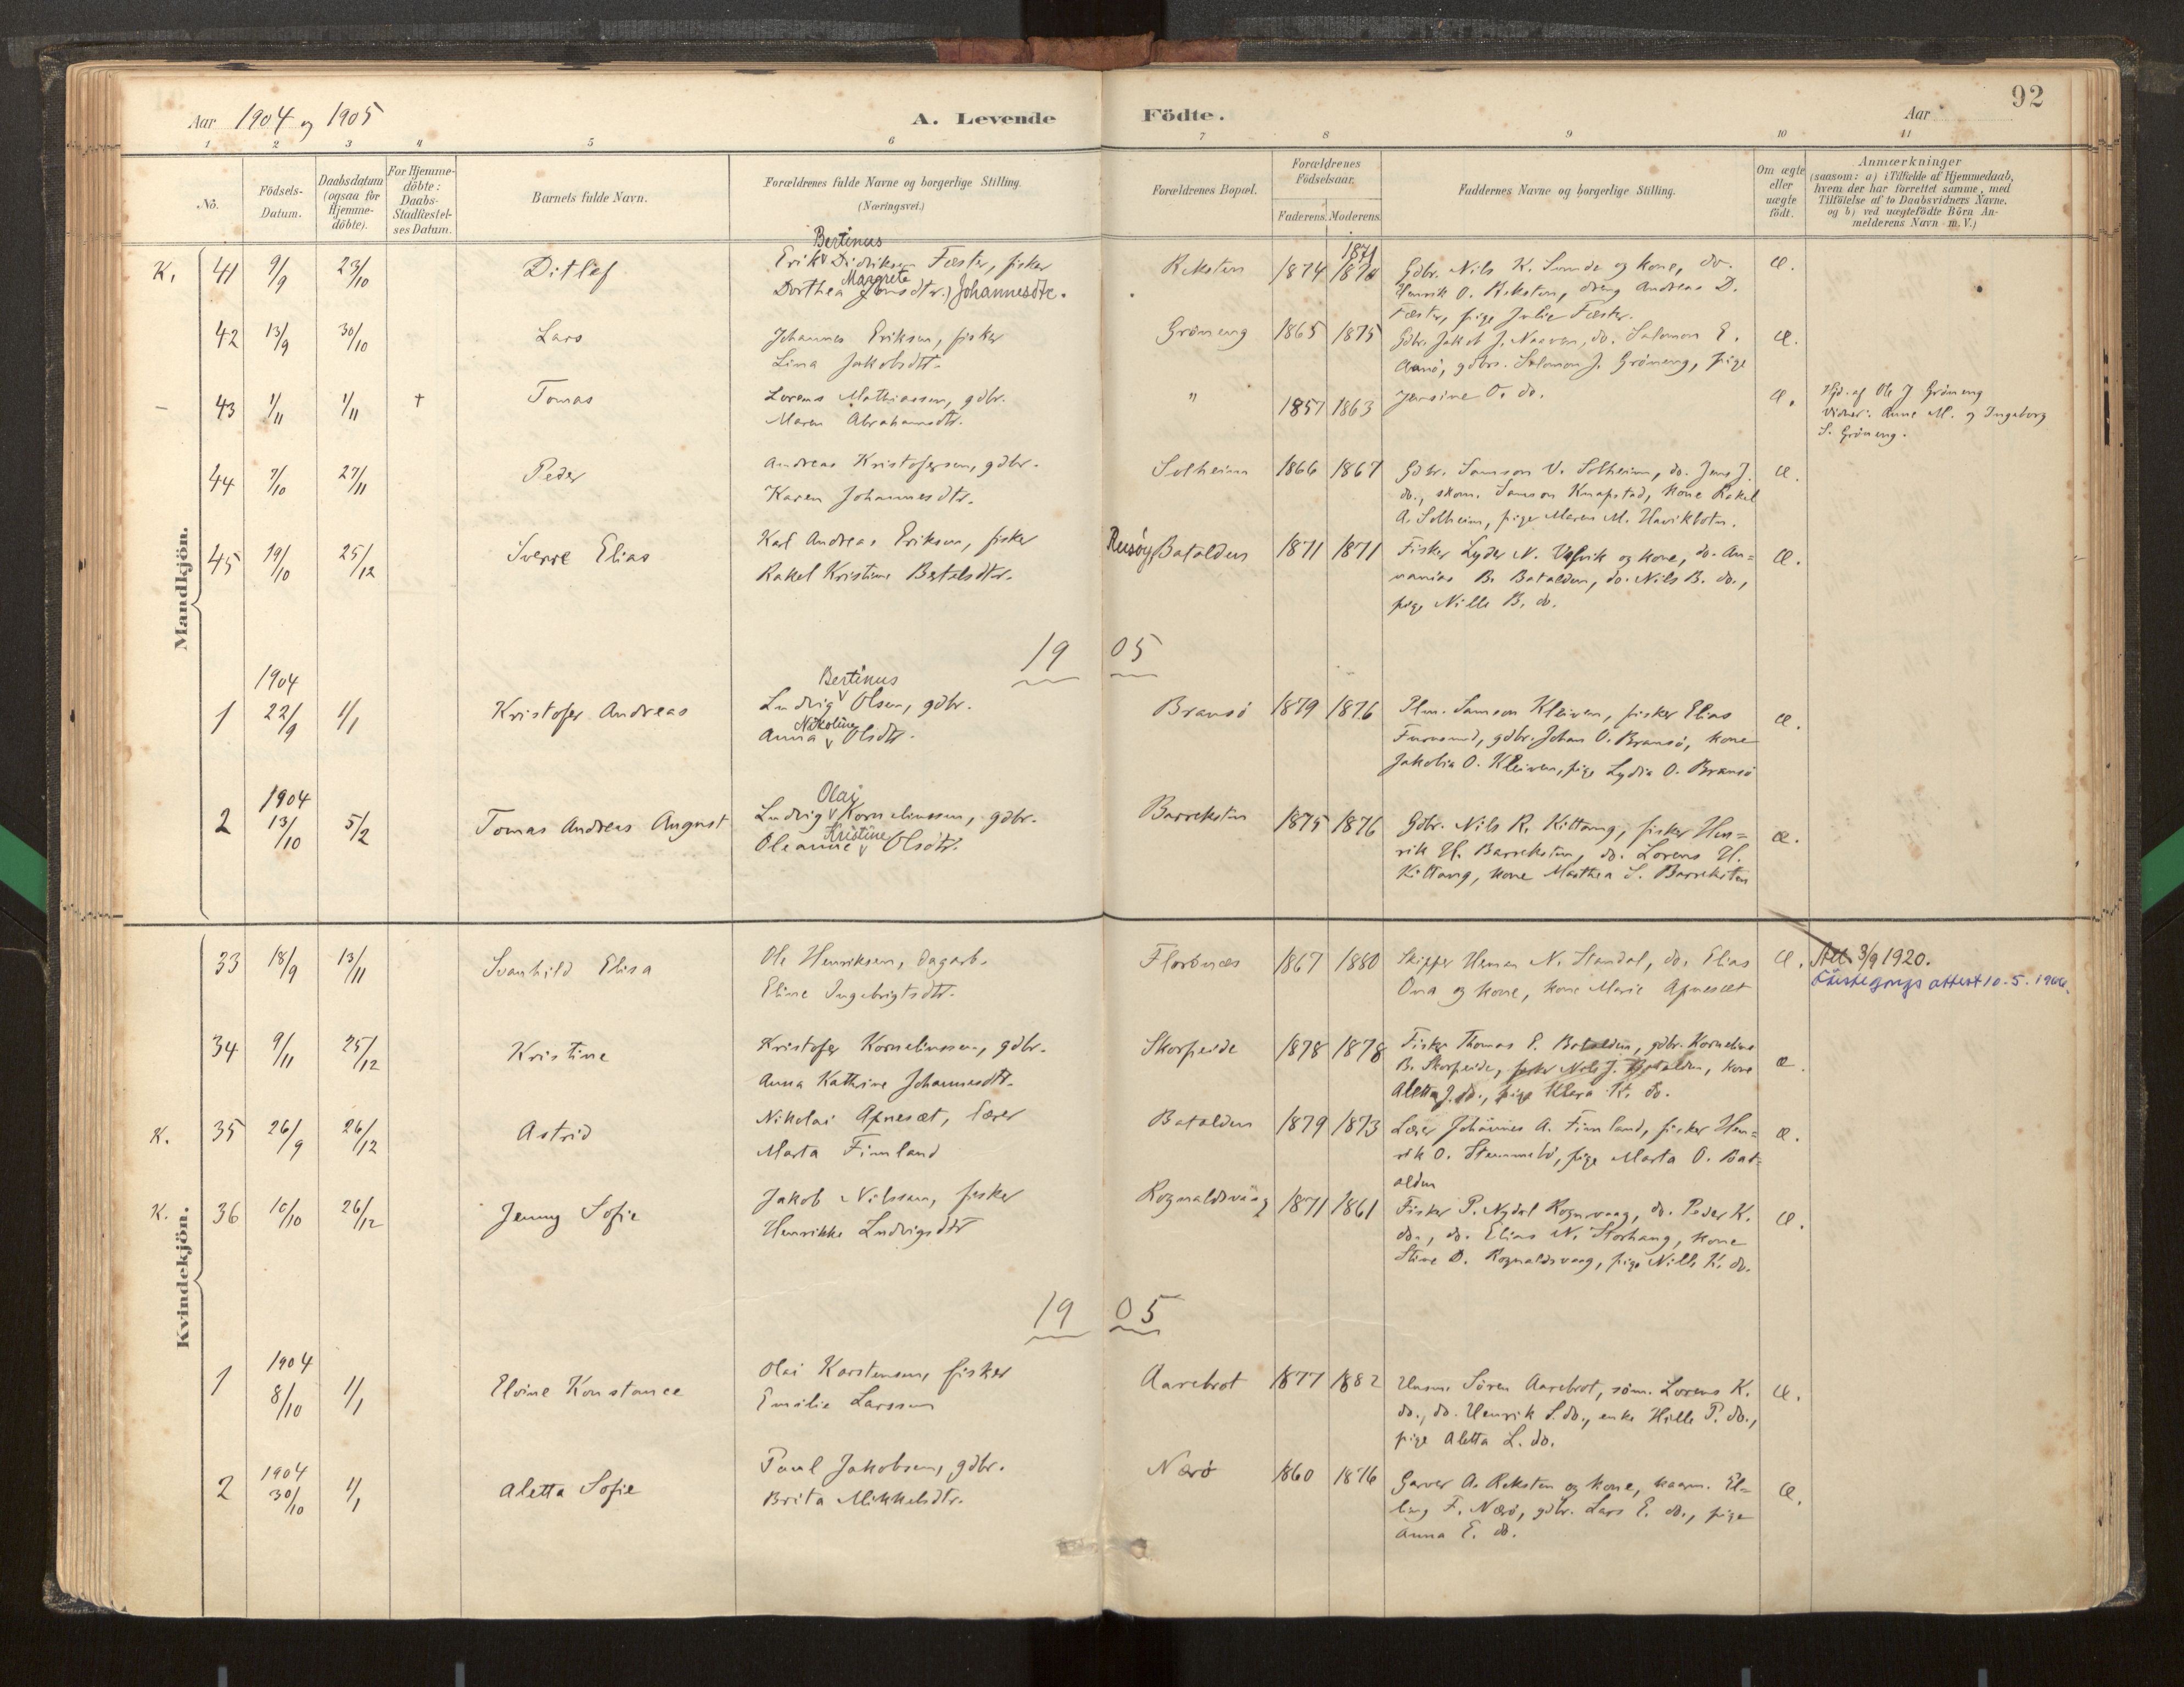 92
Aar 1904 og 1905
A. Levende Födte.
Aar
1 2 3 4 5 6 7 8 9 10 11
No.
Födsels-
Datum.
Daabsdatum
(ogsaa for
Hjemme-
döbte).
For Hjemme-
döbte:
Daabs-
Stadfæstel-
ses Datum.
Barnets fulde Navn.
Forældrenes fulde Navne og borgerlige Stilling.
(Næringsvei.)
Forældrenes Bopæl.
Forældrenes
Födselsaar.
Faderens. Moderens.
Faddernes Navne og borgerlige Stilling.
Om ægte
eller
uægte
födt.
Anmærkninger
(saasom: a) i Tilfælde af Hjemmedaab,
hvem der har forrettet samme, med
Tilföielse af to Daabsvidners Navne.
og b) ved uægtefödte Börn An-
melderens Navn m. V.)
Mandkjön.
K. 41 9/9 23/10 Ditlef
Bertinus
Erik Didriksen Fæster, fisker
Margrete
Dorthea Jonsdtr.) Johannesdtr.
Reksten 1874 1871
Gdbr. Nils K. Sunde og kone, do.
Henrik O. Reksten, dreng Andreas D.
Fæster, pige Julie Fæster.
æ.
42 13/9 30/10 Lars
Johannes Eriksen, fisker
Lina Jakobsdtr.
Gröneng 1865 1875
Gdbr. Jakob J. Naaven, do. Salomon E.
Aanö, gdbrs. Salomon J. Gröneng, pige
Jensine O. do.
æ.
43 1/11 1/11 † Tomas
Lorens Mathiassen, gdbr.
Maren Abrahamsdtr.
" 1857 1863
æ.
Hjd. af Ole J Gröneng
Vidner: Anne M. og Ingeborg
S. Gröneng.
44 7/10 27/11 Peder
Andreas Kristofersen, gdbr.
Karen Johannesdtr.
Solheim 1866 1867
Gdbr. Samson V. Solheim, do. Jens J.
do., skom. Samson Knapstad, kone Rakel
A. Solheim, pige Maren M. Havikbotn.
æ.
45 19/10 25/12 Sverre Elias
Karl Andreas Eriksen, fisker
Rakel Kristine Bertelsdtr.
Reusöy Batalden 1871 1871
Fisker Lyder N. Vasvik og kone, do. An=
nanias B. Batalden, do. Nils B. do.,
pige Nille B. do.
æ.
1905
1 1904 22/9 1/1 Kristofer Andreas
Bertinus
Ludvig Olsen, gdbr.
Nikoline
Anna Olsdtr.
Bransö 1879 1876
Plm. Samson Kleiven, fisker Elias
Furesund, gdbr. Johan O. Bransö, kone
Jakobia O. Kleiven, pige Lydia O. Bransö
æ.
2 1904 13/10 5/2 Tomas Andreas August
Olai
Ludvig Korneliussen, gdbr.
Kristine
Oleanne Olsdtr.
Barreksten 1875 1876
Gdbr. Nils R. Kittang, fisker Hen=
rik H. Barreksten, do. Lorens H.
Kittang, kone Marthea S. Barreksten
æ.
Kvindekjön.
33 18/9 13/11 Svanhild Elisa
Ole Henriksen, dagarb.
Eline Ingebrigtsdtr.
Florönæs 1867 1880
Skipper Heman N. Standal, do. Elias
Ona og kone, kone Marie Apnesæt
æ.
Att. 3/9 1920.
Förstegangs attest 10.5.1966.
34 9/11 25/12 Kristine
Kristofer Korneliussen, gdbr.
Anna Kathrine Johannesdtr.
Skorpeide 1878 1878
Fisker Thomas E. Batalden, gdbr. Kornelius
B. Skorpeide, fisker Nils J. Batalden, kone
Aletta J. do., pige Klara K. do.
æ.
K. 35 26/9 26/12 Astrid
Nikolai Apnesæt, lærer
Marta Finnland
Batalden 1879 1873
Lærer Johannes A. Finnland, fisker Hen=
rik O. Stemmebö, pige Marta O. Bat=
alden
æ.
K. 36 10/10 26/12 Jenny Sofie
Jakob Nilssen, fisker
Henrikke Ludvigsdtr
Rognaldsvaag 1871 1861
Fisker P. Nydal Rognvaag, do. Peder K.
do., do. Elias N. Storhaug, kone
Stine D. Rognaldsvaag, pige Nille K. do.
æ.
1905
1 1904 8/10 1/1 Elvine Konstance
Olai Karstensen, fisker
Emilie Larssen
Aarebrot 1877 1882
Husm. Sören Aarebrot, söm. Lorens K.
do., do. Henrik S. do., enke Hille P. do.,
pige Aletta L. do.
æ.
2 1904 30/10 1/1 Aletta Sofie
Paul Jakobsen, gdbr.
Brita Mikkelsdtr.
Nærö 1860 1876
Garver A. Reksten og kone, kaarm. El=
ling F. Nærö, gdbr. Lars E. do., pige
Anna E. do.
æ.